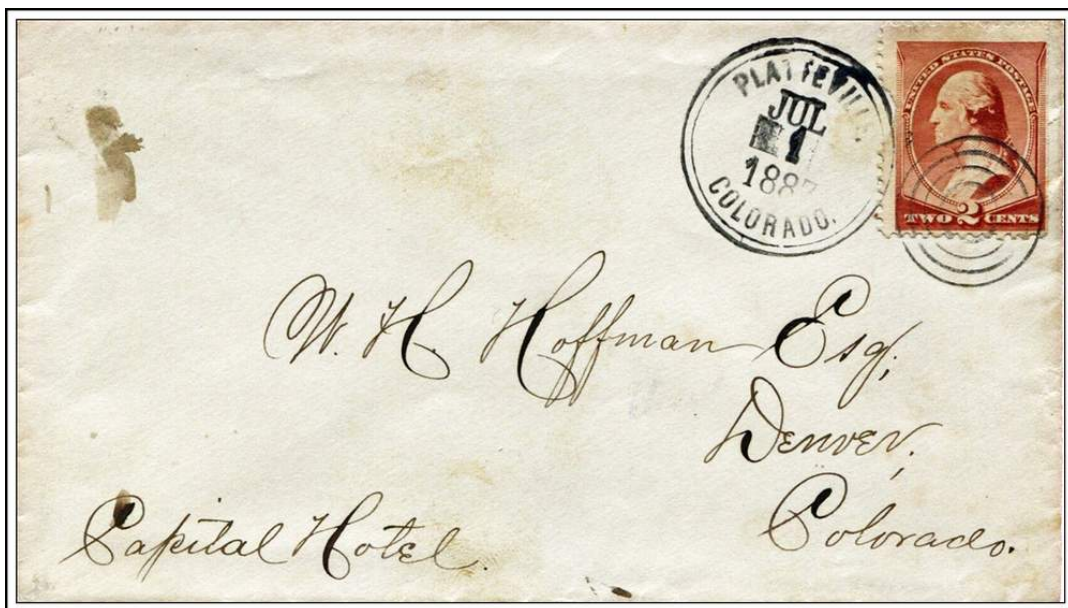 PLATTEVILLE
JUL
1
188
COLORADO.
UNITED STATES POSTAGE
TWO 2 CENTS
W. H. Hoffman Esq,
Denver,
Colorado.
Capital Hotel.